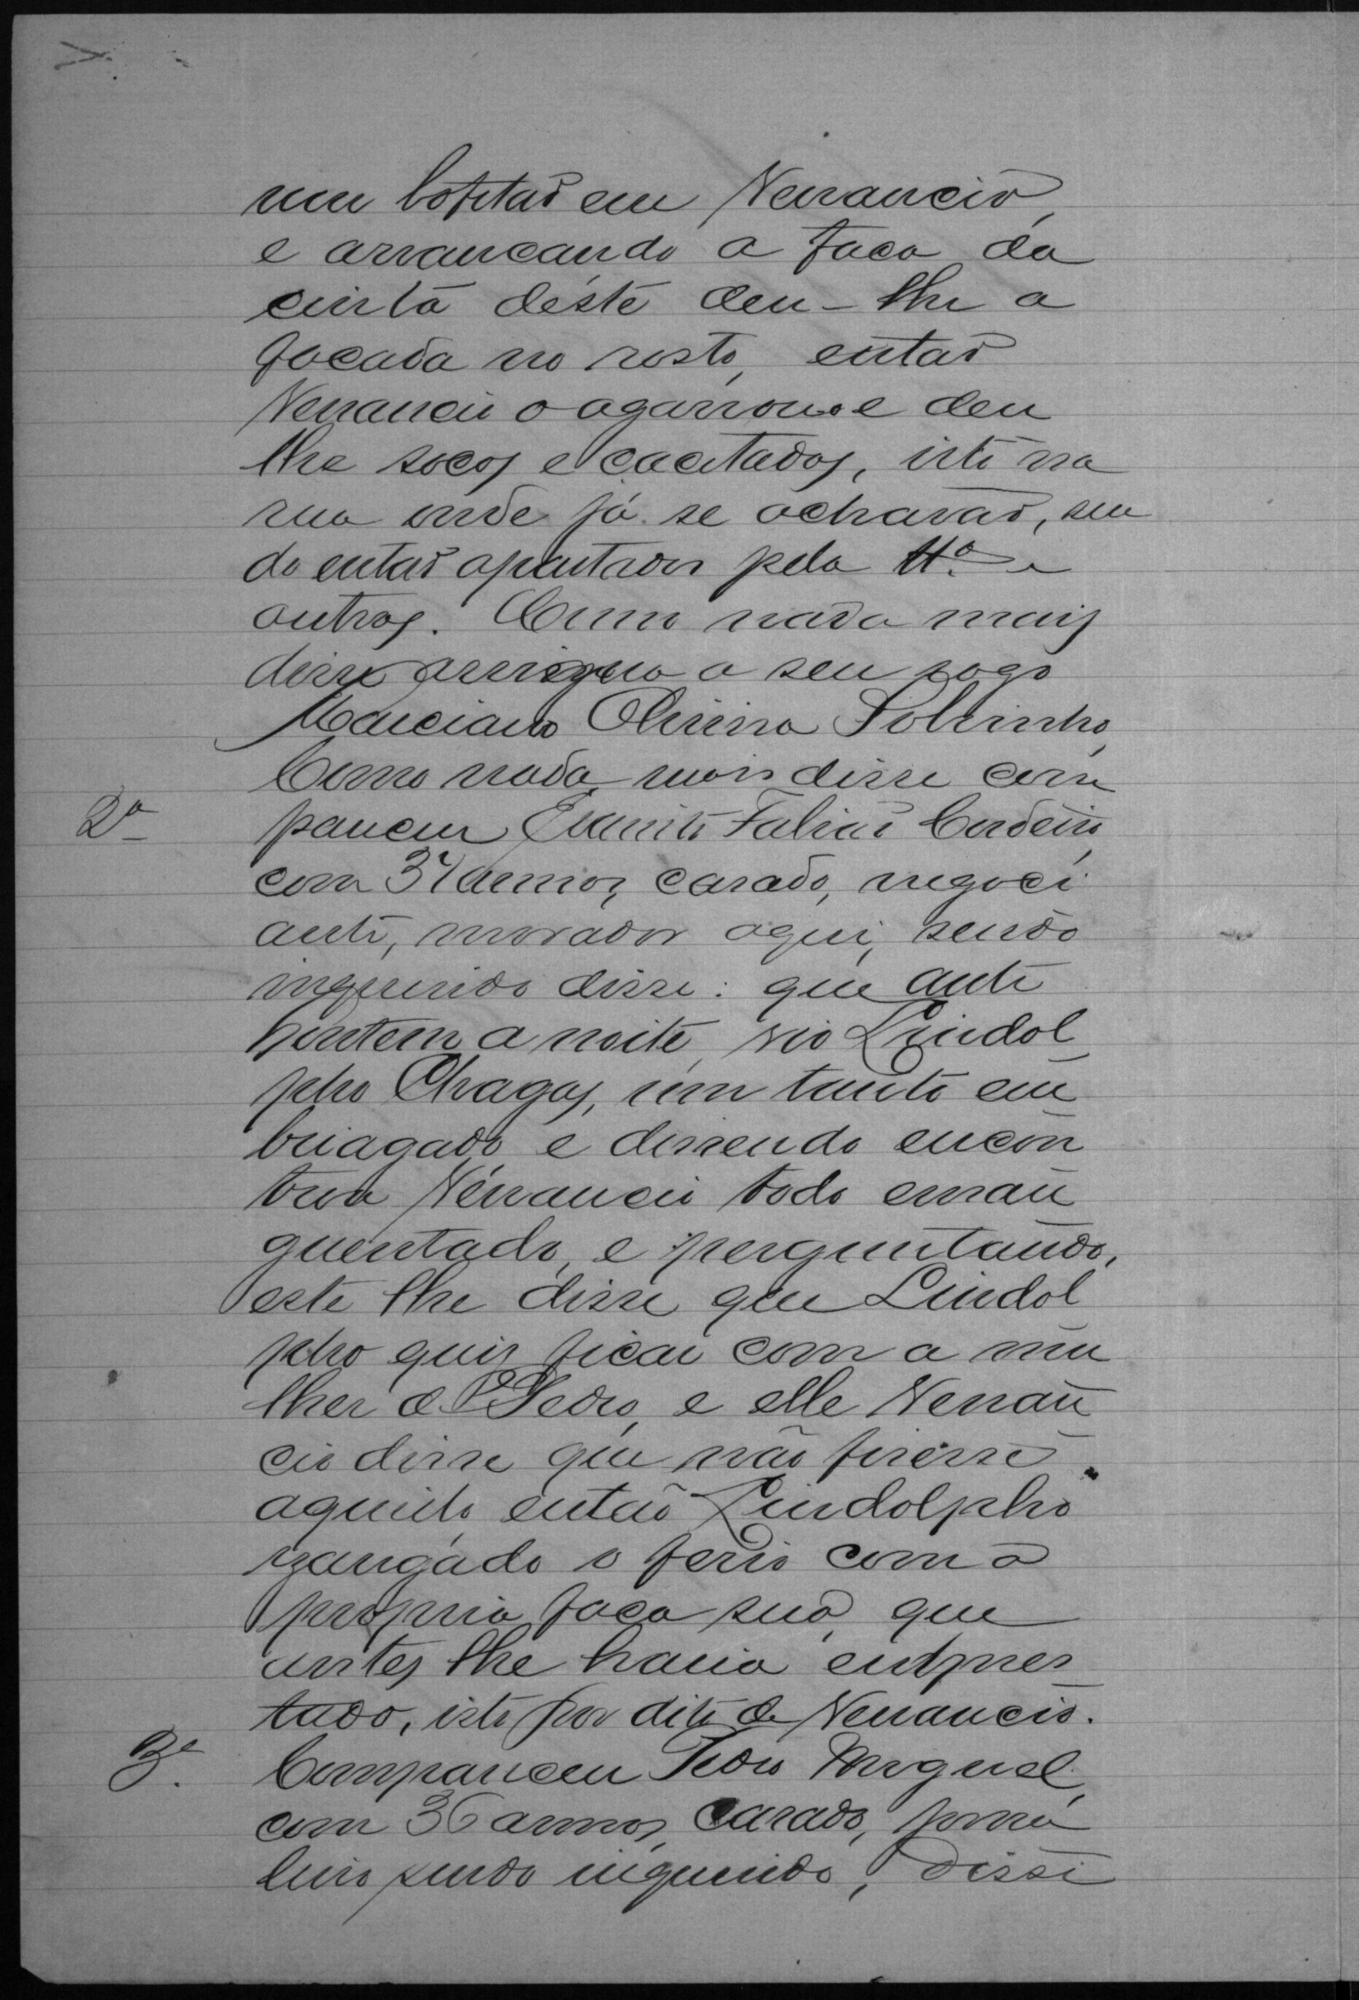 um bofetão em Venancio,
e arrancando a faca da
cinta deste deu-lhe a
facada no rosto, então
Venancio o agarrou e deu
lhe socos e cacetadas, isto na
rua onde já se achavão, sen
do então apartados pela tt.ª e
outros. Como nada mais
disse assigna a seu rogo
Marciano Oliveira Sobrinho,
Como nada mais disse com
2ª
pareceu Evaristo Fabião Cordeiro,
com 34 annos, casado, negoci
ante, morador aqui, sendo
inquerido disse: que ante
hontem a noite, vio Lindol
pho Chagas, um tanto em
briagado e descendo encon
trou Venancio todo ensan
guentado, e perguntando,
este lhe disse que Lindol
pho quis ficar com a mu
lher de Pedro, e elle Venan
cio disse que não fizesse
aquillo, então Lindolpho
zangado o ferio com a
propria faca sua, que
antes lhe havia empres
tado, isto por dito de Venancio.
3ª.
Compareceu Pedro Miguel,
com 36 annos, casado, jorna
leiro sendo inquerido, disse